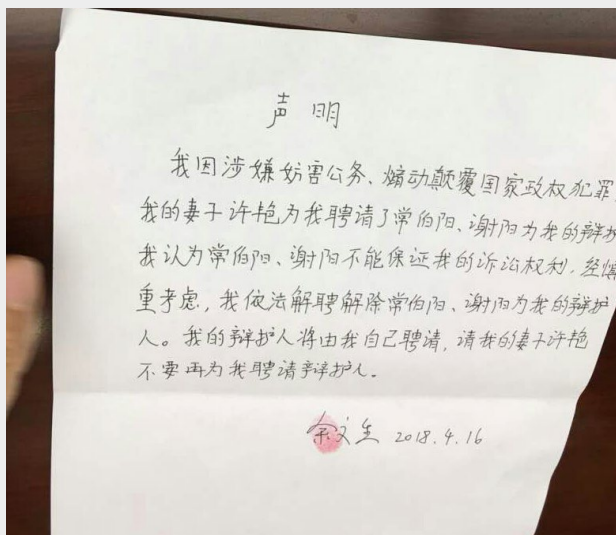 声明
我因涉嫌妨害公务、煽动颠覆国家政权犯罪
我的妻子许艳为我聘请了常伯阳、谢阳为我的辩护
我认为常伯阳、谢阳不能保证我的诉讼权利，经慎
重考虑，我依法解聘解除常伯阳、谢阳为我的辩护
人。我的辩护人将由我自己聘请，请我的妻子许艳
不要再为我聘请辩护人。
余文生 2018.4.16